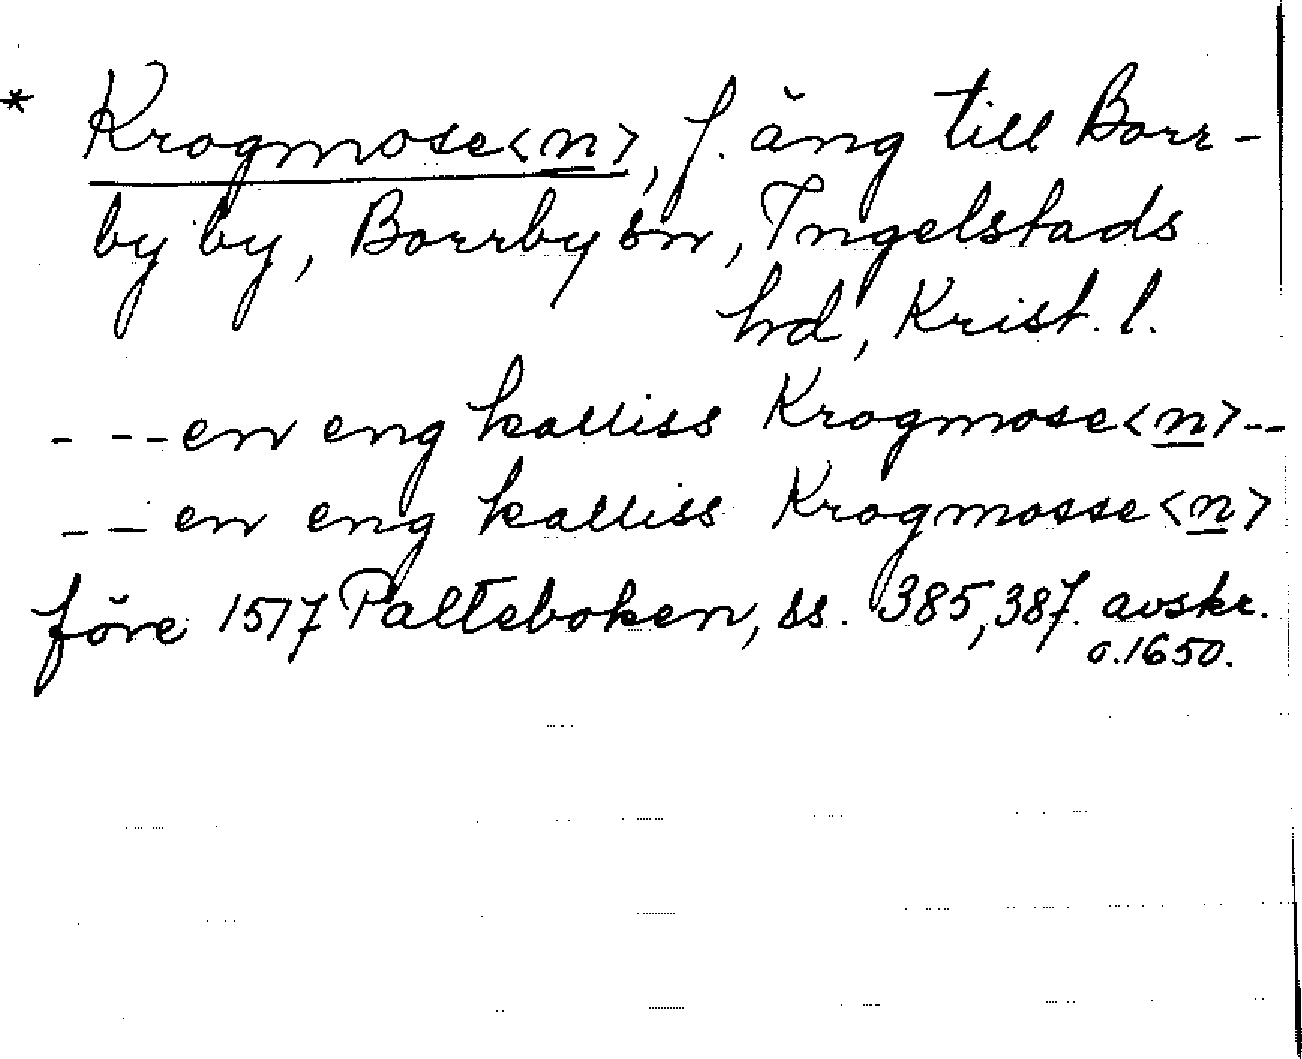 * Krogmose<n>, f. äng till Borr-
by by, Borrby sn, Ingelstads
hd, Krist. l.
- - - en eng kalliss Krogmose<n> - -
- - en eng kalliss Krogmosse<n>
före 1517 Palteboken, ss. 385, 387. avskr.
o. 1650.